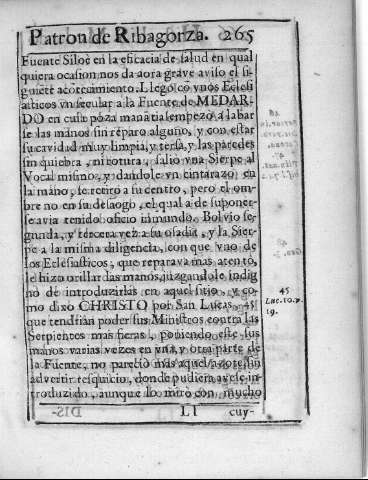 Patron de Ribagorza. 265
Fuente Siloè en la eficacia de salud en qual
quiera ocasion nos da aora grave aviso el si-
guiẽte acõtecimiento. Llegò cõ vnos Eclesi
asticos vn secular a la Fuente de MEDAR-
DO en cuia poza manãtia empezò a labar
se las manos sin reparo alguno, y con estar
su cavidad muy limpia, y tersa, y las paredes
sin quiebra, ni rotura, saliò vna Sierpe al
Vocal mismo, y dandole vn cintarazo en
la mano, se retirò a su centro, pero el om-
bre no en su desaogo, el qual a de suponer-
se avia tenido oficio inmundo. Bolviò se-
gunda, y tercera vez a su osadia, y la Sier-
pe a la misma diligencia, con que vno de
los Eclesiasticos, que reparava mas atento,
le hizo orillar las manos, juzgandole indig
no de introduzirlas en aquel sitio, y co-
mo dixo CHRISTO por San Lucas, 45
que tendrian poder sus Ministros contra las
Serpientes mas fieras, poniendo este sus
manos varias vezes en vna, y otra parte de
la Fuente, no pareciò mas aquel azote, sin
advertir resquicio, donde pudiera averse in-
troduzido, aunque lo mirò con mucho
Ll cuy-
45
Luc. 10. v.
19.